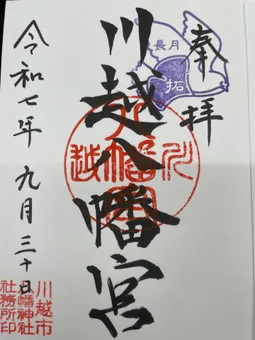 奉拝
長月
拓
川越八幡宮
令和七年九月三十日
川越市
八幡神社
社務所印